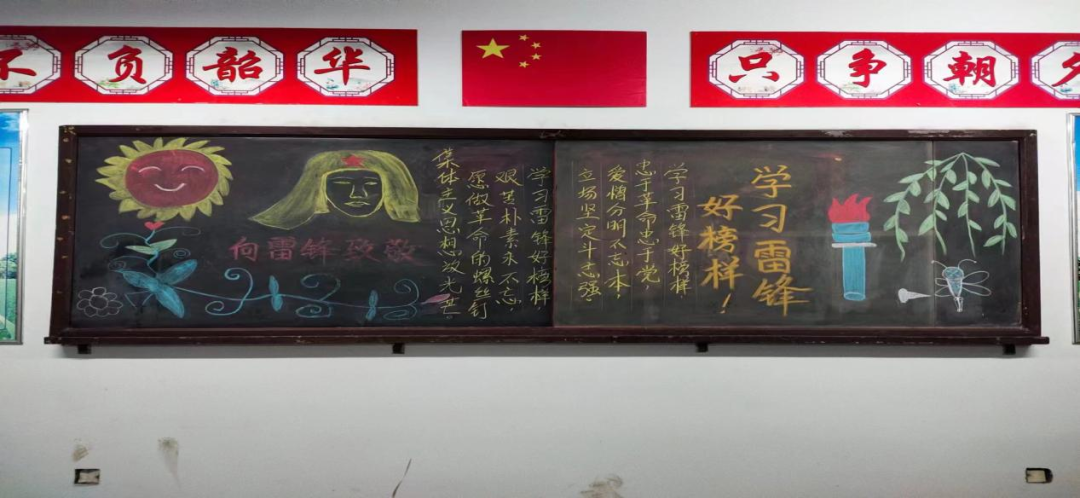 不负韶华
只争朝夕
学习雷锋
好榜样！
学习雷锋好榜样
忠于革命忠于党
爱憎分明不忘本，
立场坚定斗志强
学习雷锋好榜样，
艰苦朴素永不忘，
愿做革命的螺丝钉
集体主义思想放光芒。
向雷锋致敬